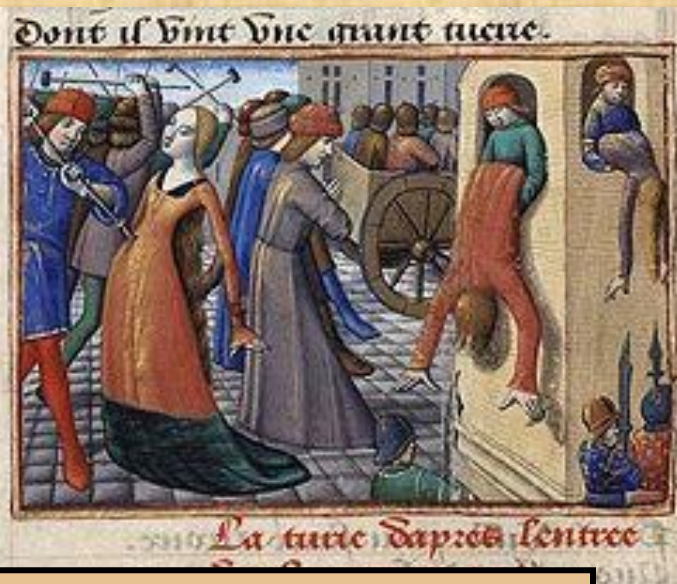 Dont il vint vne grant tuerie.
La turie dapres lentree